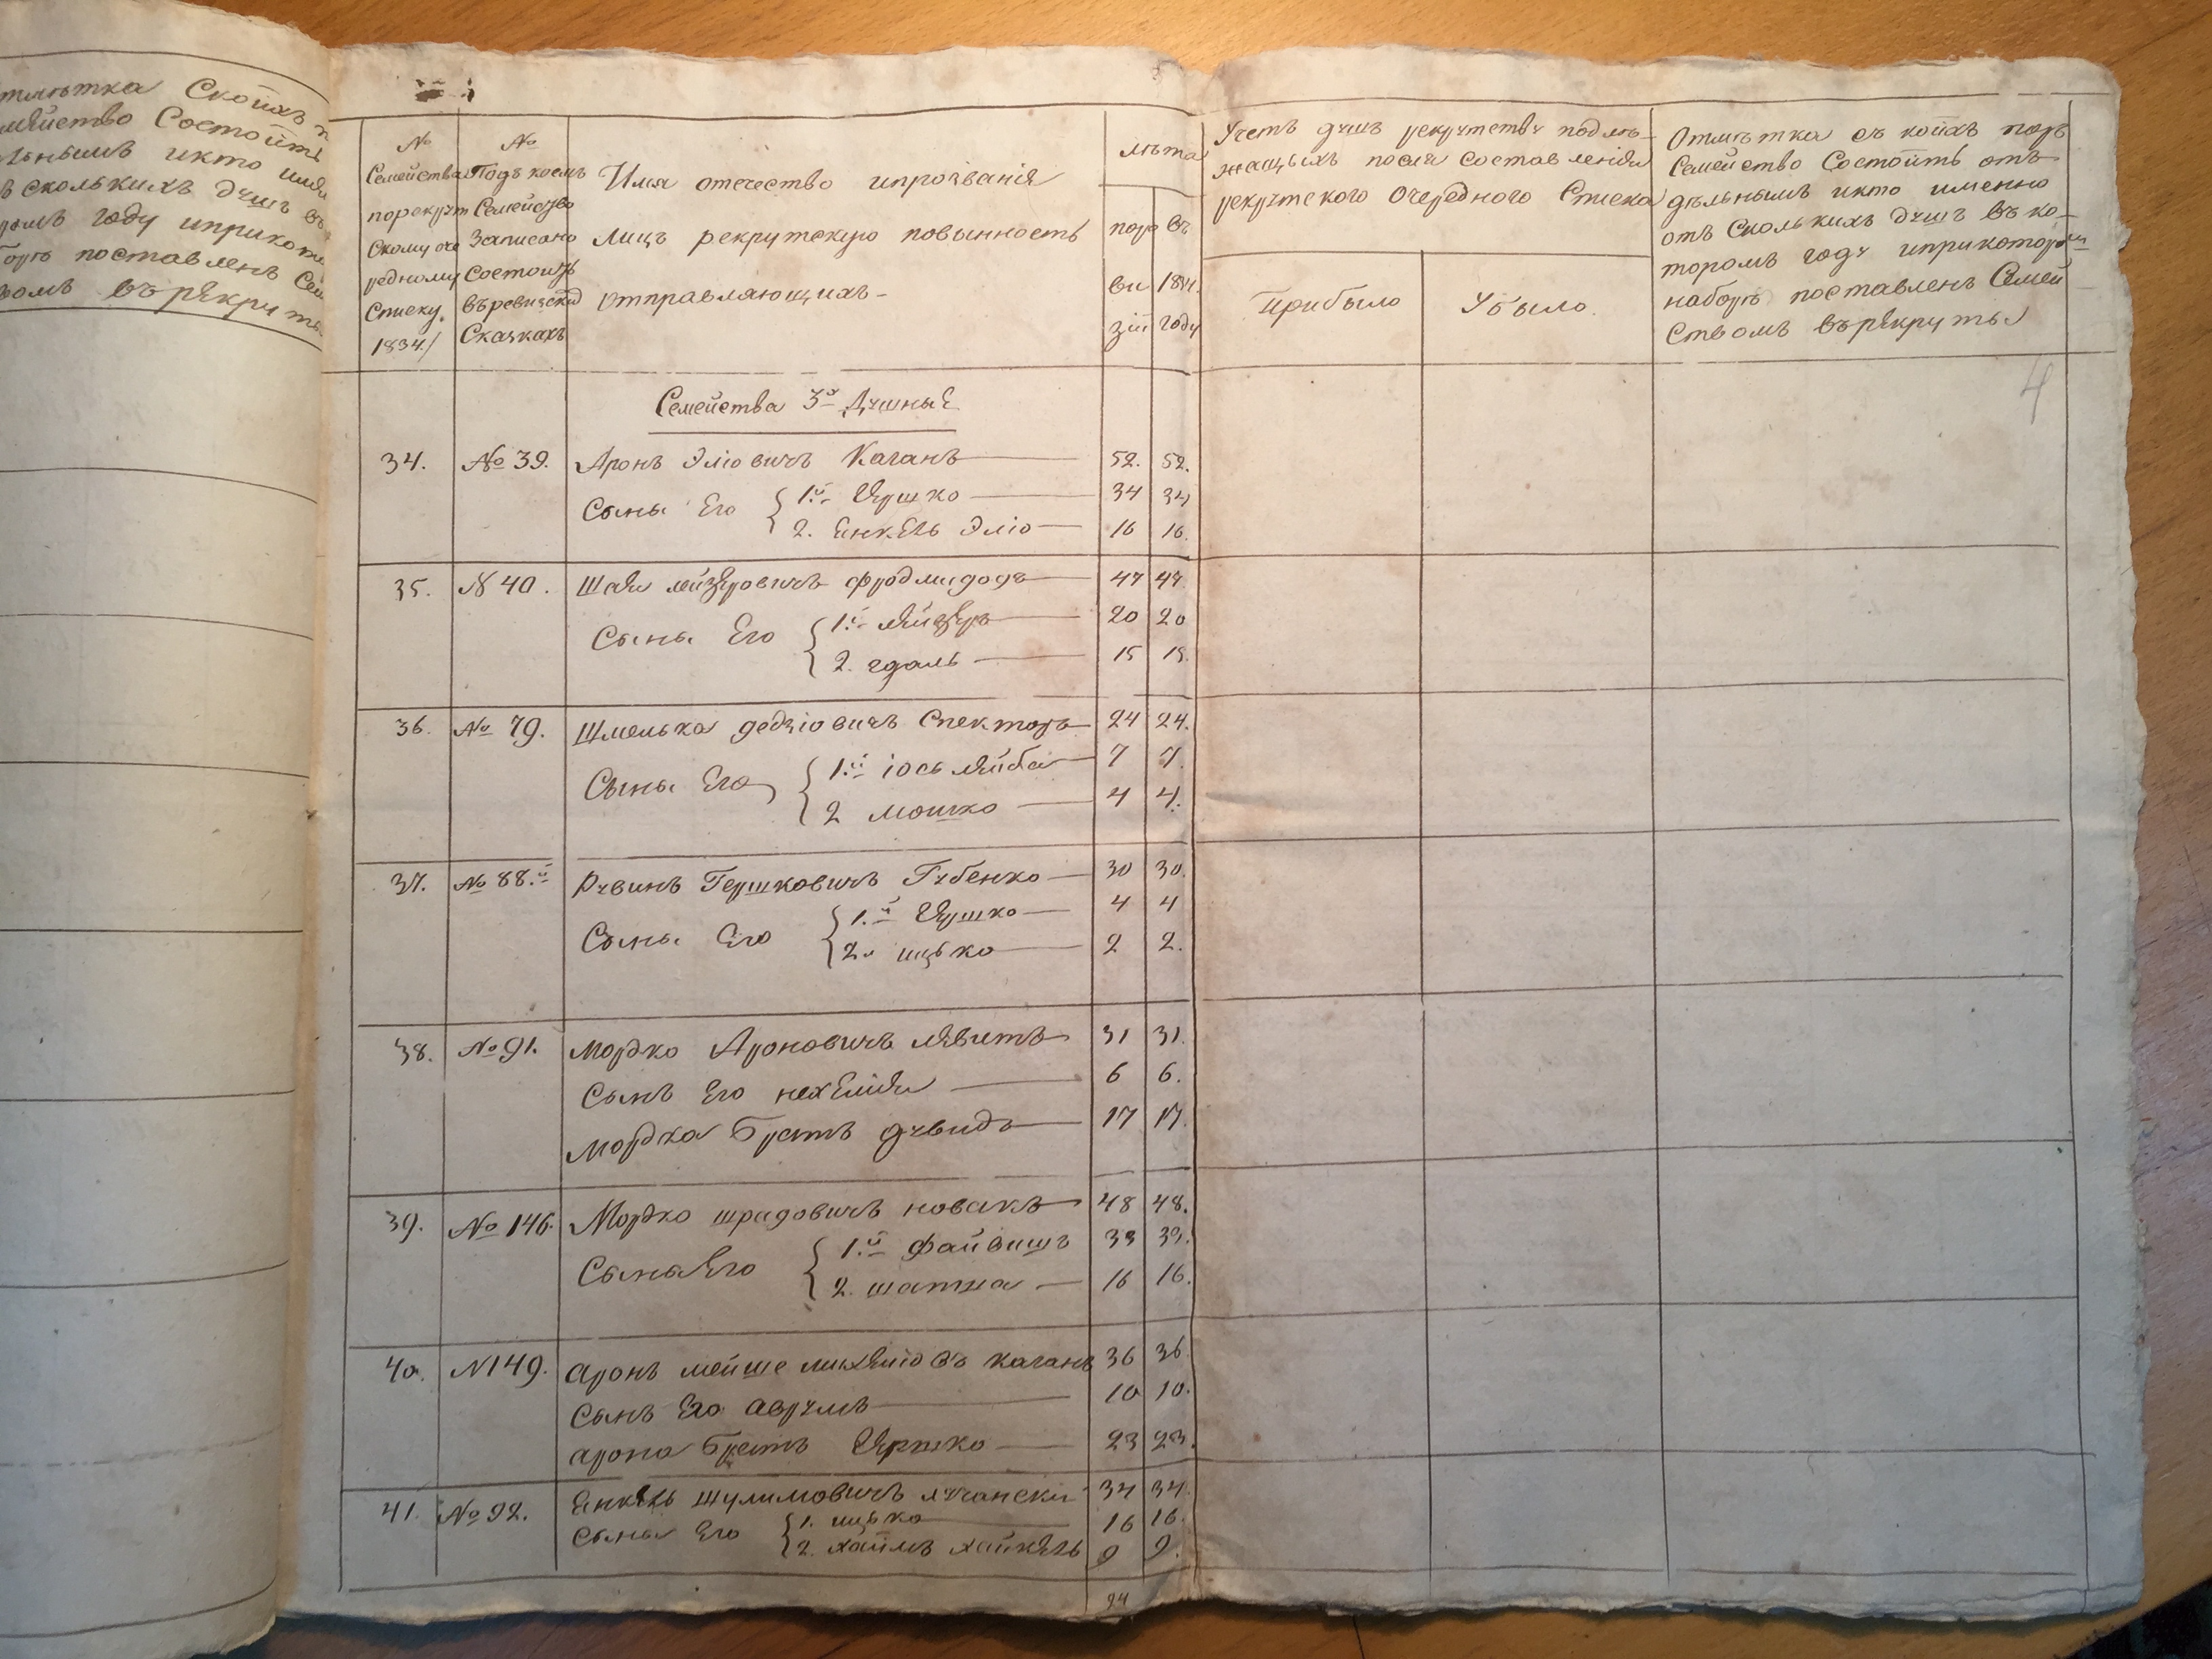 Скоихъ
Состоитъ
икто
сколькихъ душъ въ
году
поставленъ
въ рекруты
№
Семейства
порекрут
скому оче
редному
Списку.
1834./
№
Подъ коемъ
Семейство
Записано
состоитъ
въ ревизской
Сказкахъ
Имя отечество ипрозванія
лицъ рекрутскую повынность
отправляющихъ
лѣта
поре
ви
зіи
въ
1834.
году
Учетъ душъ рекрутству подле-
жащыхъ после составленія
рекрутского Очередного Списка
Прибыло
Убыло.
Отмѣтка съ коихъ поръ
Семейство Состоитъ отъ
дѣльнымъ икто именно
отъ Сколькихъ душъ въ ко-
торомъ году иприкоторомъ
наборѣ поставленъ Семей
Ствомъ въ рекруты
4
Семейства 3й Душные
34. № 39. Аронъ Эліовичъ Каганъ 52. 52.
Сыны Его 1.й Гершко 34 34
2. Енкель Эліо 16 16.
35. № 40. Шая лейзеровичъ 47 47.
Сыны Его 1.й лейзеръ 20 20
2. гдаль 15 15.
36. № 79. Шмелька Спекторъ 24 24.
Сыны Его 1.й іось лейба 7 7.
2 мошко 4 4.
37. № 88.й Рувинъ Гершковичъ Губенко 30 30.
Сыны Его 1.й Гершко 4 4
2.й ицько 2 2.
38. № 91. Мордко Ароновичъ левитъ 31 31.
Сынъ Его нехемія 6 6.
Мордка братъ давидъ 17 17.
39. № 146. Мордко новакъ 48 48.
Сыны Его 1.й файвишъ
2. 16 16.
40. № 149. Аронъ мейше каганъ 36 36.
Сынъ Его аврумъ 10 10.
арона братъ Гершко 23 23.
41. № 92. Енкель Шулимовичъ 34 34.
Сыны Его 1. ицько 16 16.
2. хаимъ хайкель 9 9.
24